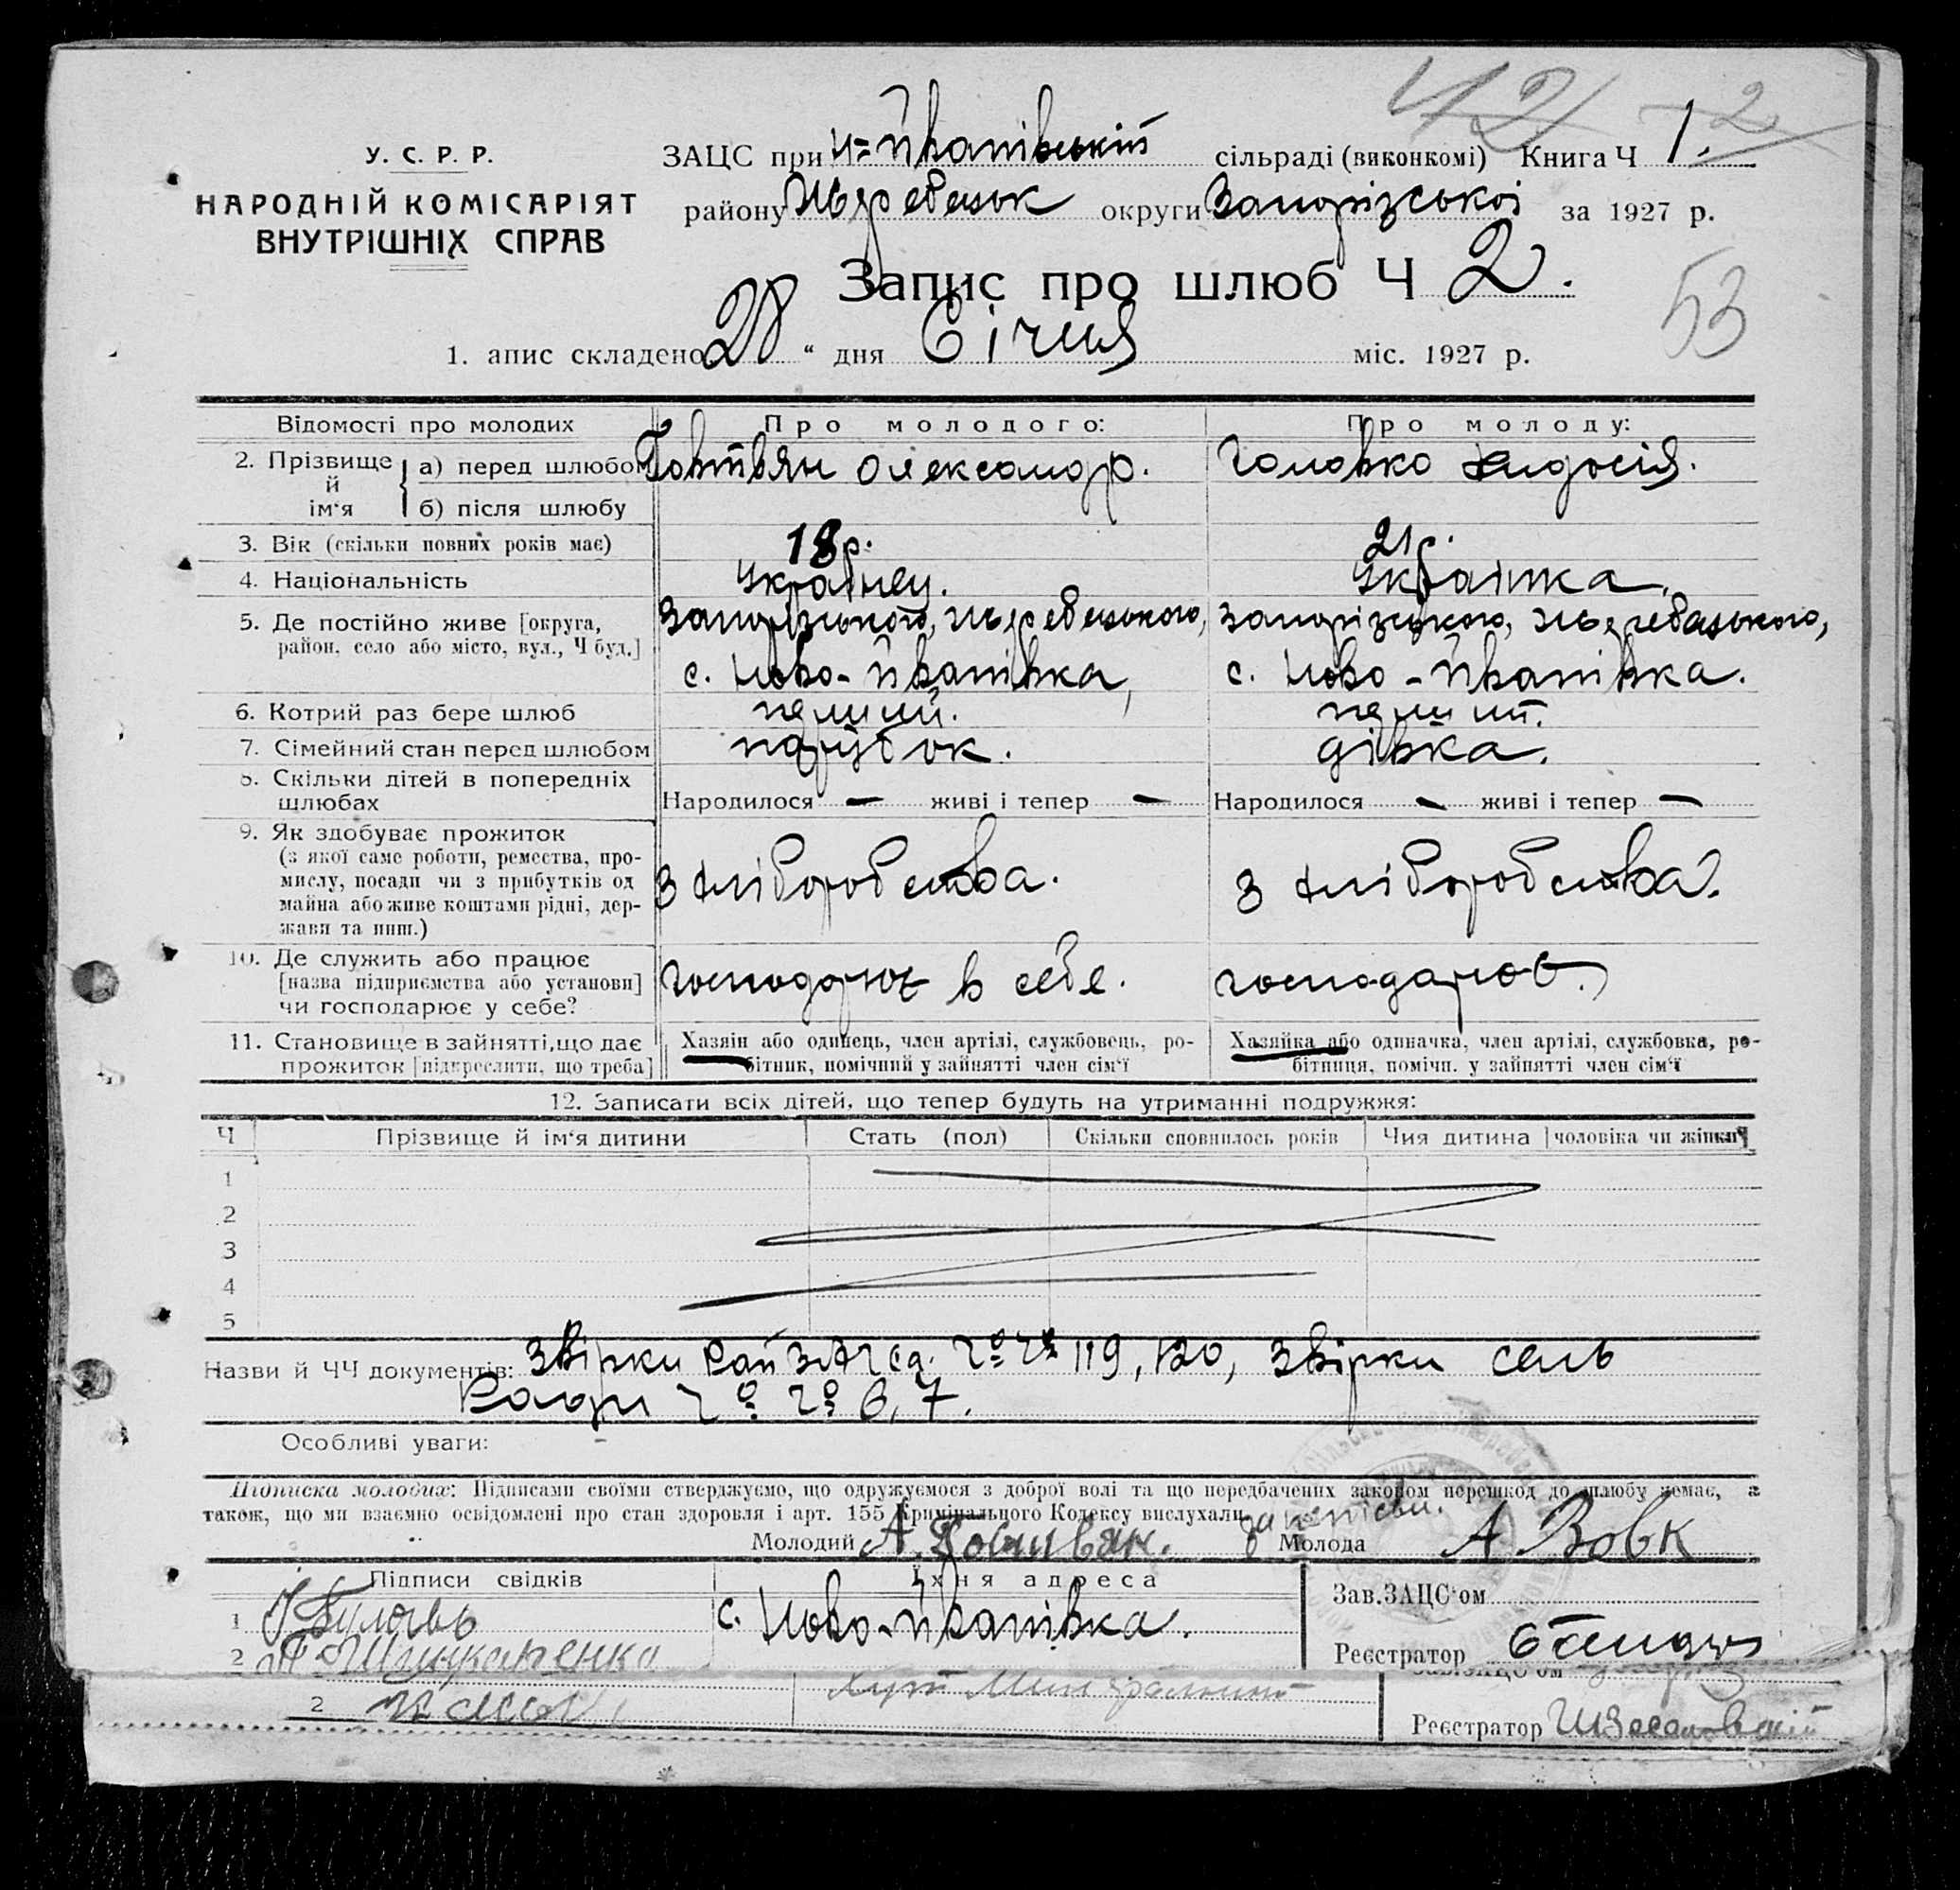 42 2
У. С. Р. Р.
НАРОДНІЙ КОМІСАРІЯТ
ВНУТРІШНІХ СПРАВ
ЗАЦС при Н-Иванівській сільраді (виконкомі) Книга Ч 1.
району Жеребецьк округи Запорізської за 1927 р.
Запис про шлюб Ч 2.
53
1. апис складено 28 “ дня Січня міс. 1927 р.
Відомості про молодих Про молодого: Про молоду:
2. Прізвище й ім‘я а) перед шлюбом Говтвян Олександр. Головко Явдосія.
б) після шлюбу
3. Вік (скільки повних років має) 18 р. 21 р.
4. Національність Українец. Українка.
5. Де постійно живе [округа, Запорізького, Жеребецького, Запорізького, Жеребецького,
район, село або місто, вул., Ч буд.] с. Ново-Иванівка, с. Ново-Иванівка.
6. Котрий раз бере шлюб перший. перший.
7. Сімейний стан перед шлюбом парубок. дівка.
8. Скільки дітей в попередніх
шлюбах Народилося — живі і тепер — Народилося — живі і тепер —
9. Як здобуває прожиток
(з якої саме роботи, ремества, про-
мислу, посади чи з прибутків од З хліборобства. З хліборобства.
майна або живе коштами рідні, дер-
жави та инш.)
10. Де служить або працює
[назва підприємства або установи] господарює в себе. господарює.
чи господарює у себе?
11. Становище в зайнятті, що дає Хазяїн або одинець, член артілі, службовець, ро- Хазяйка або одиначка, член артілі, службовка, ро-
прожиток [підкреслити, що треба] бітник, помічний у зайнятті член сім‘ї бітниця, помічн. у зайнятті член сім‘ї
12. Записати всіх дітей, що тепер будуть на утриманні подружжя:
Ч Прізвище й ім‘я дитини Стать (пол) Скільки сповнилось років Чия дитина [чоловіка чи жінки]
1
2
3
4
5
Назви й ЧЧ документів: Звірки Рай 119, 120, Звірки сель
Ради 6, 7.
Особливі уваги: –
Підписка молодих: Підписами своїми стверджуємо, що одружуємося з доброї волі та що передбачених законом перешкод до шлюбу немає, а
також, що ми взаємно освідомлені про стан здоровля і арт. 155 Кримінального Кодексу вислухали.
Молодий А. Говтвян. Молода А Вовк
Підписи свідків Їхня адреса Зав. ЗАЦС‘ом
1 с. Ново-Иванівка.
2 Реєстратор
Зав.ЗАЦС‘ом
2 Хут
Реєстратор